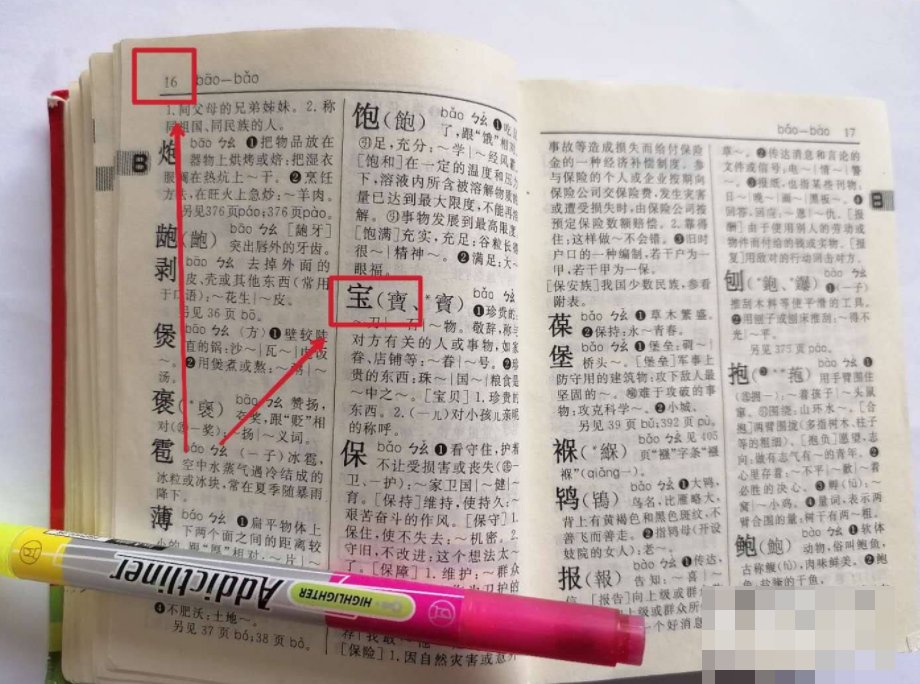 16 bāo—bǎo
1.同父母的兄弟姊妹。2.称
同祖国、同民族的人。
炮 bāo ㄅㄠ ❶把物品放在
器物上烘烤或焙:把湿衣
在热炕上~干。❷烹饪
方法,在旺火上急炒:~羊肉。
另见376页páo;376页pào。
龅(齙) bāo ㄅㄠ [龅牙]
突出唇外的牙齿。
剥 bāo ㄅㄠ 去掉外面的
皮、壳或其他东西(常用
于口语):~花生|~皮。
另见36页bō。
煲 bāo ㄅㄠ (方)❶壁较陡
直的锅:沙~|瓦~|电饭
~。❷用煲煮或熬:~粥|~
汤。
褒(*襃) bāo ㄅㄠ 赞扬,
夸奖,跟“贬”相
对(~奖):~扬|~义词。
雹 báo ㄅㄠˊ (一子)冰雹,
空中水蒸气遇冷结成的
冰粒或冰块,常在夏季随暴雨
降下。
薄 báo ㄅㄠˊ ❶扁平物体上
下两个面之间的距离较
小的,跟“厚”相对:~片|~
❹不肥沃:土地~。
另见37页bó;38页bò。
饱(飽) bǎo ㄅㄠˇ ❶吃足
了,跟“饿”相
足,充分:~学|~经风霜
[饱和]在一定的温度和压力
下,溶液内所含被溶解物质的
量已达到最大限度,不能再溶
解。❸事物发展到最高限度。
[饱满]充实,充足:谷粒长得
很~|精神~。❷满足:大~
眼福。
宝(寶、*寳) bǎo ㄅㄠˇ
❶珍贵的:
~刀|~石|~物。敬辞,称与
对方有关的人或事物,如家
眷、店铺等:~眷|~号。❷珍
贵的东西:珠~|国~|粮食是
~中之~。[宝贝]1.珍贵的
东西。2.(一儿)对小孩儿亲昵
的称呼。
保 bǎo ㄅㄠˇ ❶看守住,护着
不让受损害或丧失(
卫、一护):~家卫国|~健|~
育。[保持]维持,使持久:~
艰苦奋斗的作风。[保守]1.
保住,使不失去:~机密。2.
守旧,不改进:这个想法太~
了。[保障]1.维护:~群众
[保险]1.因自然灾害或意外
báo—bào 17
事故等造成损失而给付保险
金的一种经济补偿制度。参
与保险的个人或企业按期向
保险公司交保险费,发生灾害
或遭受损失时,由保险公司按
预定保险数额赔偿。2.靠得
住:这样做~不会错。❸旧时
户口的一种编制,若干户为一
甲,若干甲为一保。
[保安族]我国少数民族,参看
附表。
葆 bǎo ㄅㄠˇ ❶草木繁盛。
❷保持:永~青春。
堡 bǎo ㄅㄠˇ ❶堡垒:碉~|
桥头~。[堡垒]军事上
防守用的建筑物:攻下敌人最
坚固的~。难于攻破的事
物:攻克科学~。❷小城。
另见39页bǔ;392页pù。
褓(*緥) bǎo ㄅㄠˇ 见405
页“襁”字条“襁
褓”(qiǎng一)。
鸨(鴇) bǎo ㄅㄠˇ ❶大鸨,
鸟名,比雁略大,
背上有黄褐色和黑色斑纹,不
善飞而善走。❷指鸨母(开设
妓院的女人):老~。
报(報) bào ㄅㄠˋ ❶传达,
告知:~喜|~
信。[报告]向上级或群
上级或群众所
一个好消息
章~。❷传达消息和言论的
文件或信号:电~|情~|警
~。❸报纸,也指某些刊物:
日~|晚~|画~|黑板~。❹
回答,回应:~恩|~仇。[报
酬]由于使用别人的劳动或
物件而付给的钱或实物。[报
复]用敌对的行动回击对方。
刨(*鉋、*鑤) bào ㄅㄠˋ
❶(一子)
推刮木料等使平滑的工具。
❷用刨子或刨床推刮:~得不
光|~平。
另见375页páo。
抱 bào ㄅㄠˋ
❶用手臂围住
~着孩子|~头鼠
窜。围绕:山环水~。[合
抱]两臂围拢(多指树木、柱子
等的粗细)。[抱负]愿望,志
向:做有志气有~的青年。❷
心里存着:~不平|~歉|~着
必胜的决心。❸孵(
窝|~小鸡。❹量词,表示两
臂合围的量:树干有两~粗。
鲍(鮑) bào ㄅㄠˋ ❶软体
动物,俗叫鲍鱼,
古称鳆(fù),肉味鲜美。❷鲍
鱼,盐腌的干鱼。
B
B
Addictliner
HIGHLIGHTER